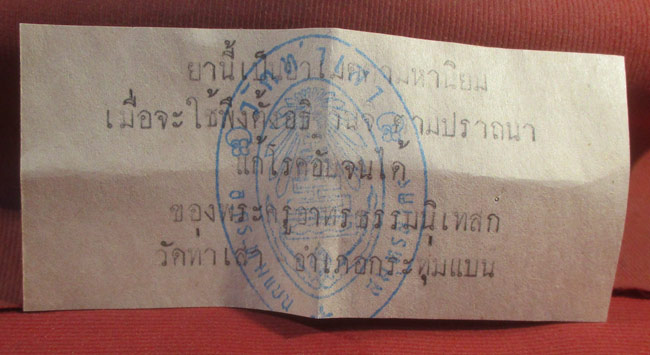 ยานี้เป็นยาเมตตามหานิยม
เมื่อจะใช้พึงตั้งอธิฐานจิตตามปราถนา
แก้โรคอื่นจนได้
ของพระครูอาทรธรรมนิเทสก
วัดท่าเสา อำเภอกระทุ่มแบน
วัดท่าเสา